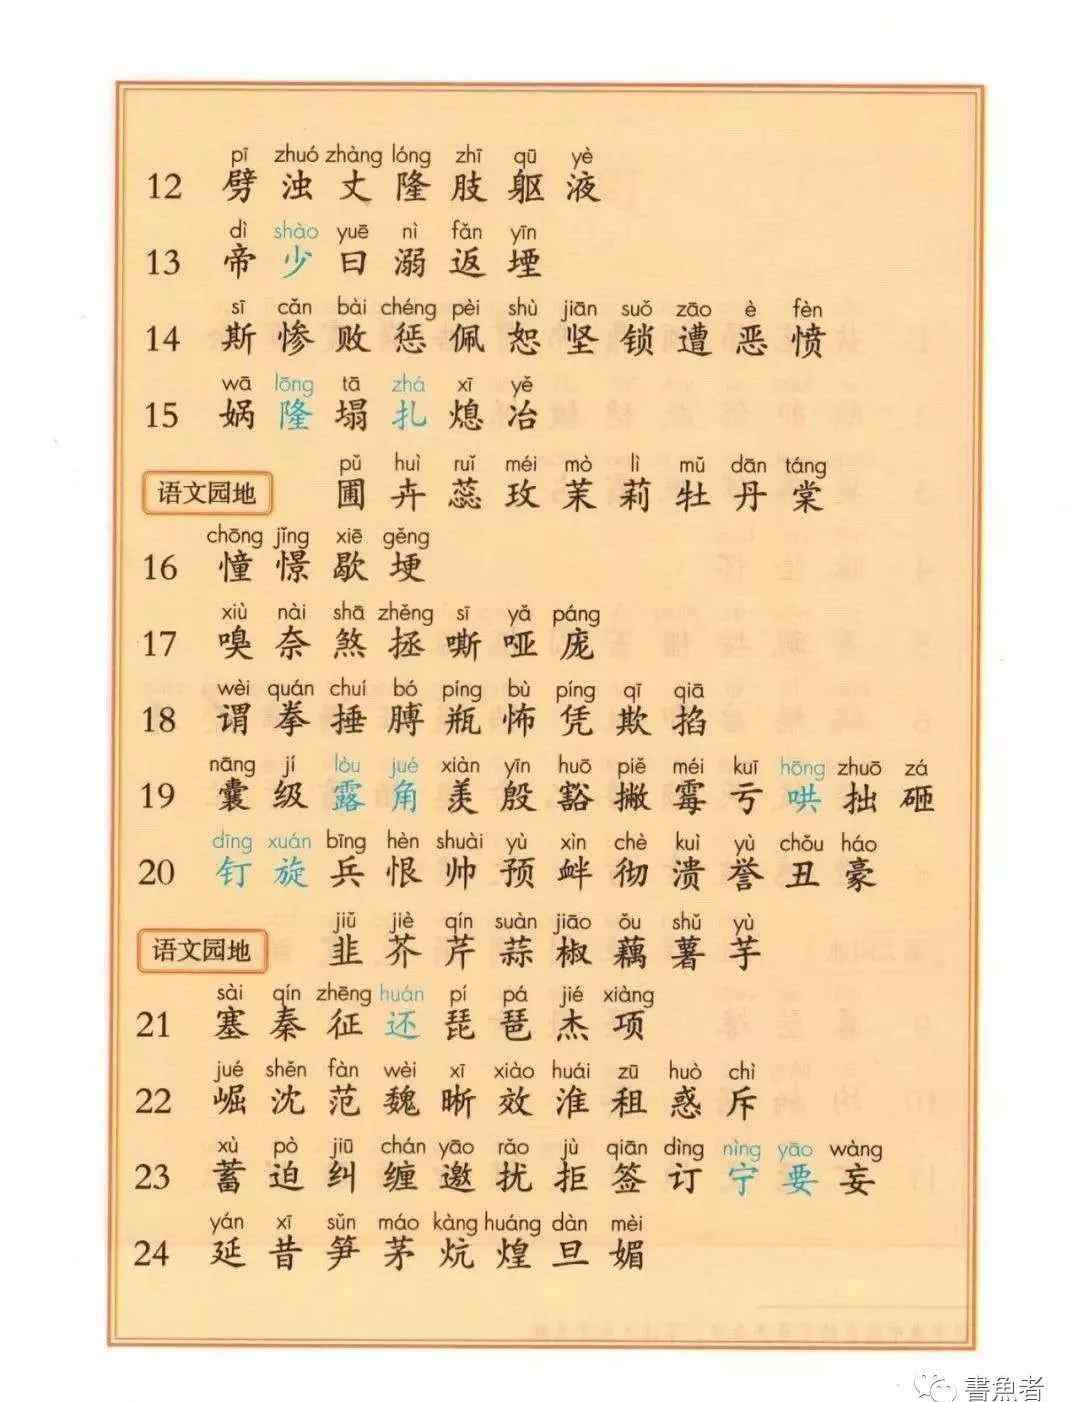 pī zhuó zhàng lóng zhī qū yè
12 劈 浊 丈 隆 肢 躯 液
dì shào yuē nì fǎn yīn
13 帝 少 曰 溺 返 堙
sī cǎn bài chéng pèi shù jiān suǒ zāo è fèn
14 斯 惨 败 惩 佩 恕 坚 锁 遭 恶 愤
wā lōng tā zhá xī yě
15 娲 隆 塌 扎 熄 冶
pǔ huì ruǐ méi mò lì mǔ dān táng
语文园地 圃 卉 蕊 玫 茉 莉 牡 丹 棠
chōng jǐng xiē gěng
16 憧 憬 歇 埂
xiù nài shā zhěng sī yǎ páng
17 嗅 奈 煞 拯 嘶 哑 庞
wèi quán chuí bó píng bù píng qī qiā
18 谓 拳 捶 膊 瓶 怖 凭 欺 掐
nāng jí lòu jué xiàn yīn huō piě méi kuī hōng zhuō zá
19 囊 级 露 角 羡 殷 豁 撇 霉 亏 哄 拙 砸
dīng xuán bīng hèn shuài yù xìn chè kuì yù chǒu háo
20 钉 旋 兵 恨 帅 预 衅 彻 溃 誉 丑 豪
jiǔ jiè qín suàn jiāo ǒu shǔ yù
语文园地 韭 芥 芹 蒜 椒 藕 薯 芋
sài qín zhēng huán pí pá jié xiàng
21 塞 秦 征 还 琵 琶 杰 项
jué shěn fàn wèi xī xiào huái zū huò chì
22 崛 沈 范 魏 晰 效 淮 租 惑 斥
xù pò jiū chán yāo rǎo jù qiān dìng nìng yāo wàng
23 蓄 迫 纠 缠 邀 扰 拒 签 订 宁 要 妄
yán xī sǔn máo kàng huáng dàn mèi
24 延 昔 笋 茅 炕 煌 旦 媚
書魚者